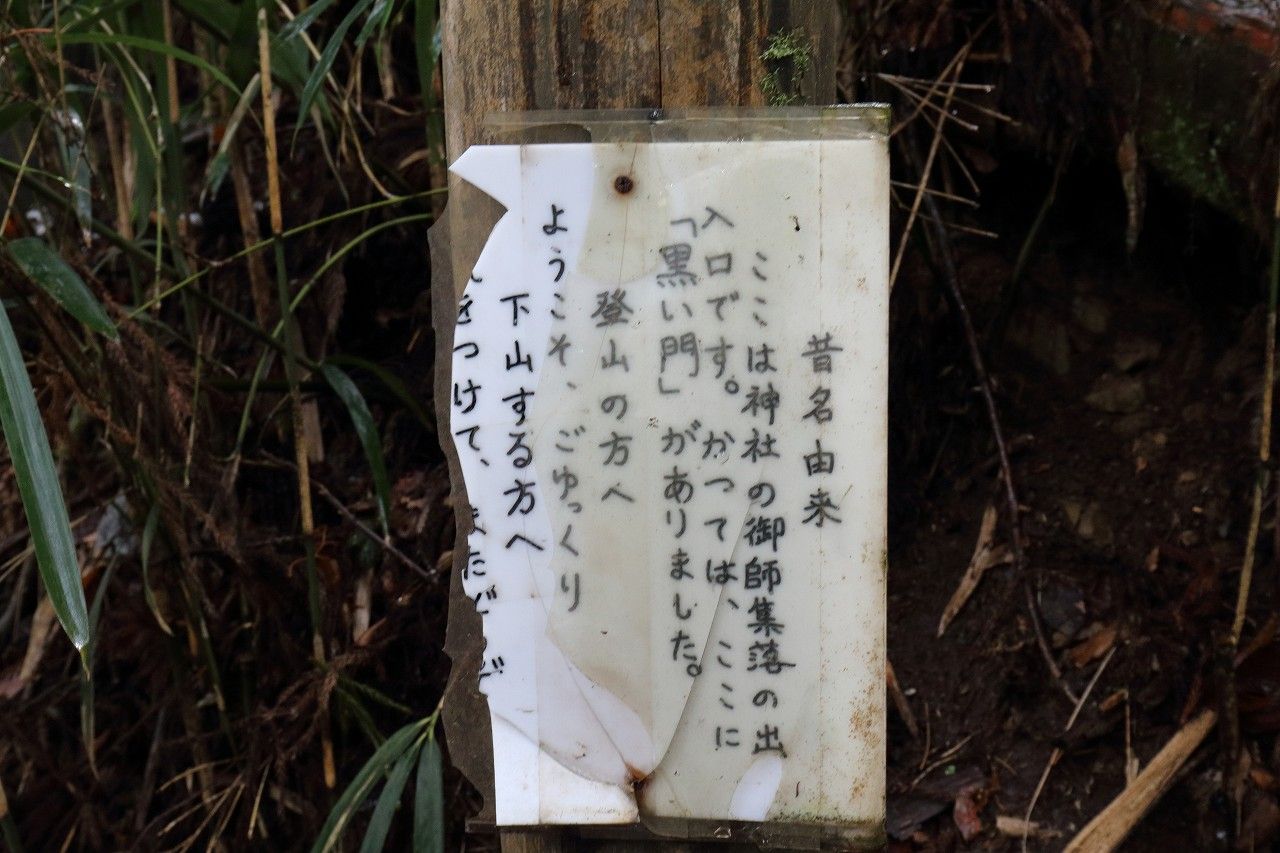 昔名由来
ここは神社の御師集落の出
入口です。かつては、ここに
「黒い門」がありました。
登山の方へ
ようこそ、ごゆっくり
下山する方へ
をつけて、またど